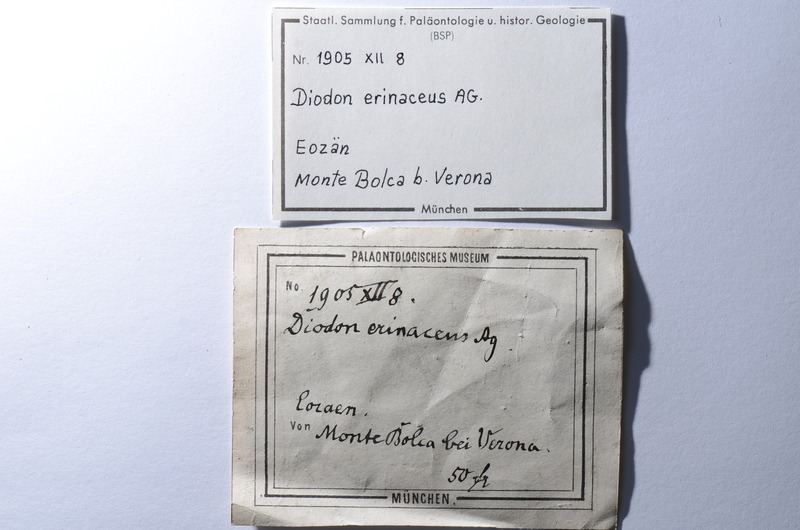 Staatl. Sammlung f. Paläontologie u. histor. Geologie
(BSP)
Nr. 1905 XII 8
Diodon erinaceus AG.
Eozän
Monte Bolca b. Verona
München
PALÄONTOLOGISCHES MUSEUM
No 1905 XII 8.
Diodon erinaceus Ag
Eocaen.
Von Monte Bolca bei Verona.
50 fr
MÜNCHEN.